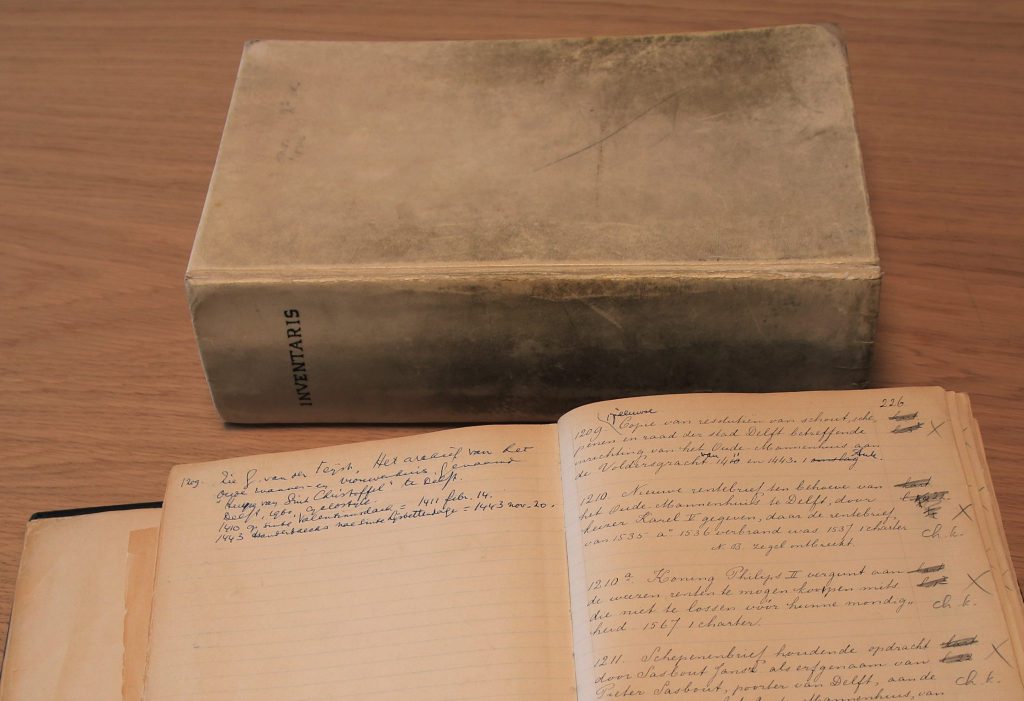 INVENTARIS
1209. Zie G. van der Feyst, Het archief van het
oude mannen- en vrouwenhuis, genaamd
"Sint Christoffel" te Delft.
Delft, 1960,
1410 op sinte Valentijnsdach = 1411 febr. 14.
1443 = 1443 nov. 20.
226
Zeeuwse
1209. Copie van resolutien van schout, sche,
penen en raad der stad Delft betreffende
inrichting van het Oude-Mannenhuis aan
de Voldersgracht van 1410 en 1443. 1
1210. Nieuwe rentebrief ten behoeve van
het Oude-Mannenhuis te Delft, door
keizer Karel V gegeven, daar de rentebrief
van 1535 a° 1536 verbrand was 1537 1 charter
ch. k.
N.B. zegel ontbreekt.
1210a. Koning Philips II vergunt aan
de weezen renten te mogen koopen mits
die niet te lossen vóór hunne mondig,,
ch. k.
heid 1567 1 charter.
1211. Schepenenbrief houdende opdracht
door Sasbout Jansz. als erfgenaam van
Pieter Sasbout, poorter van Delft, aan de
ch. k.
Oude-Mannenhuis, van